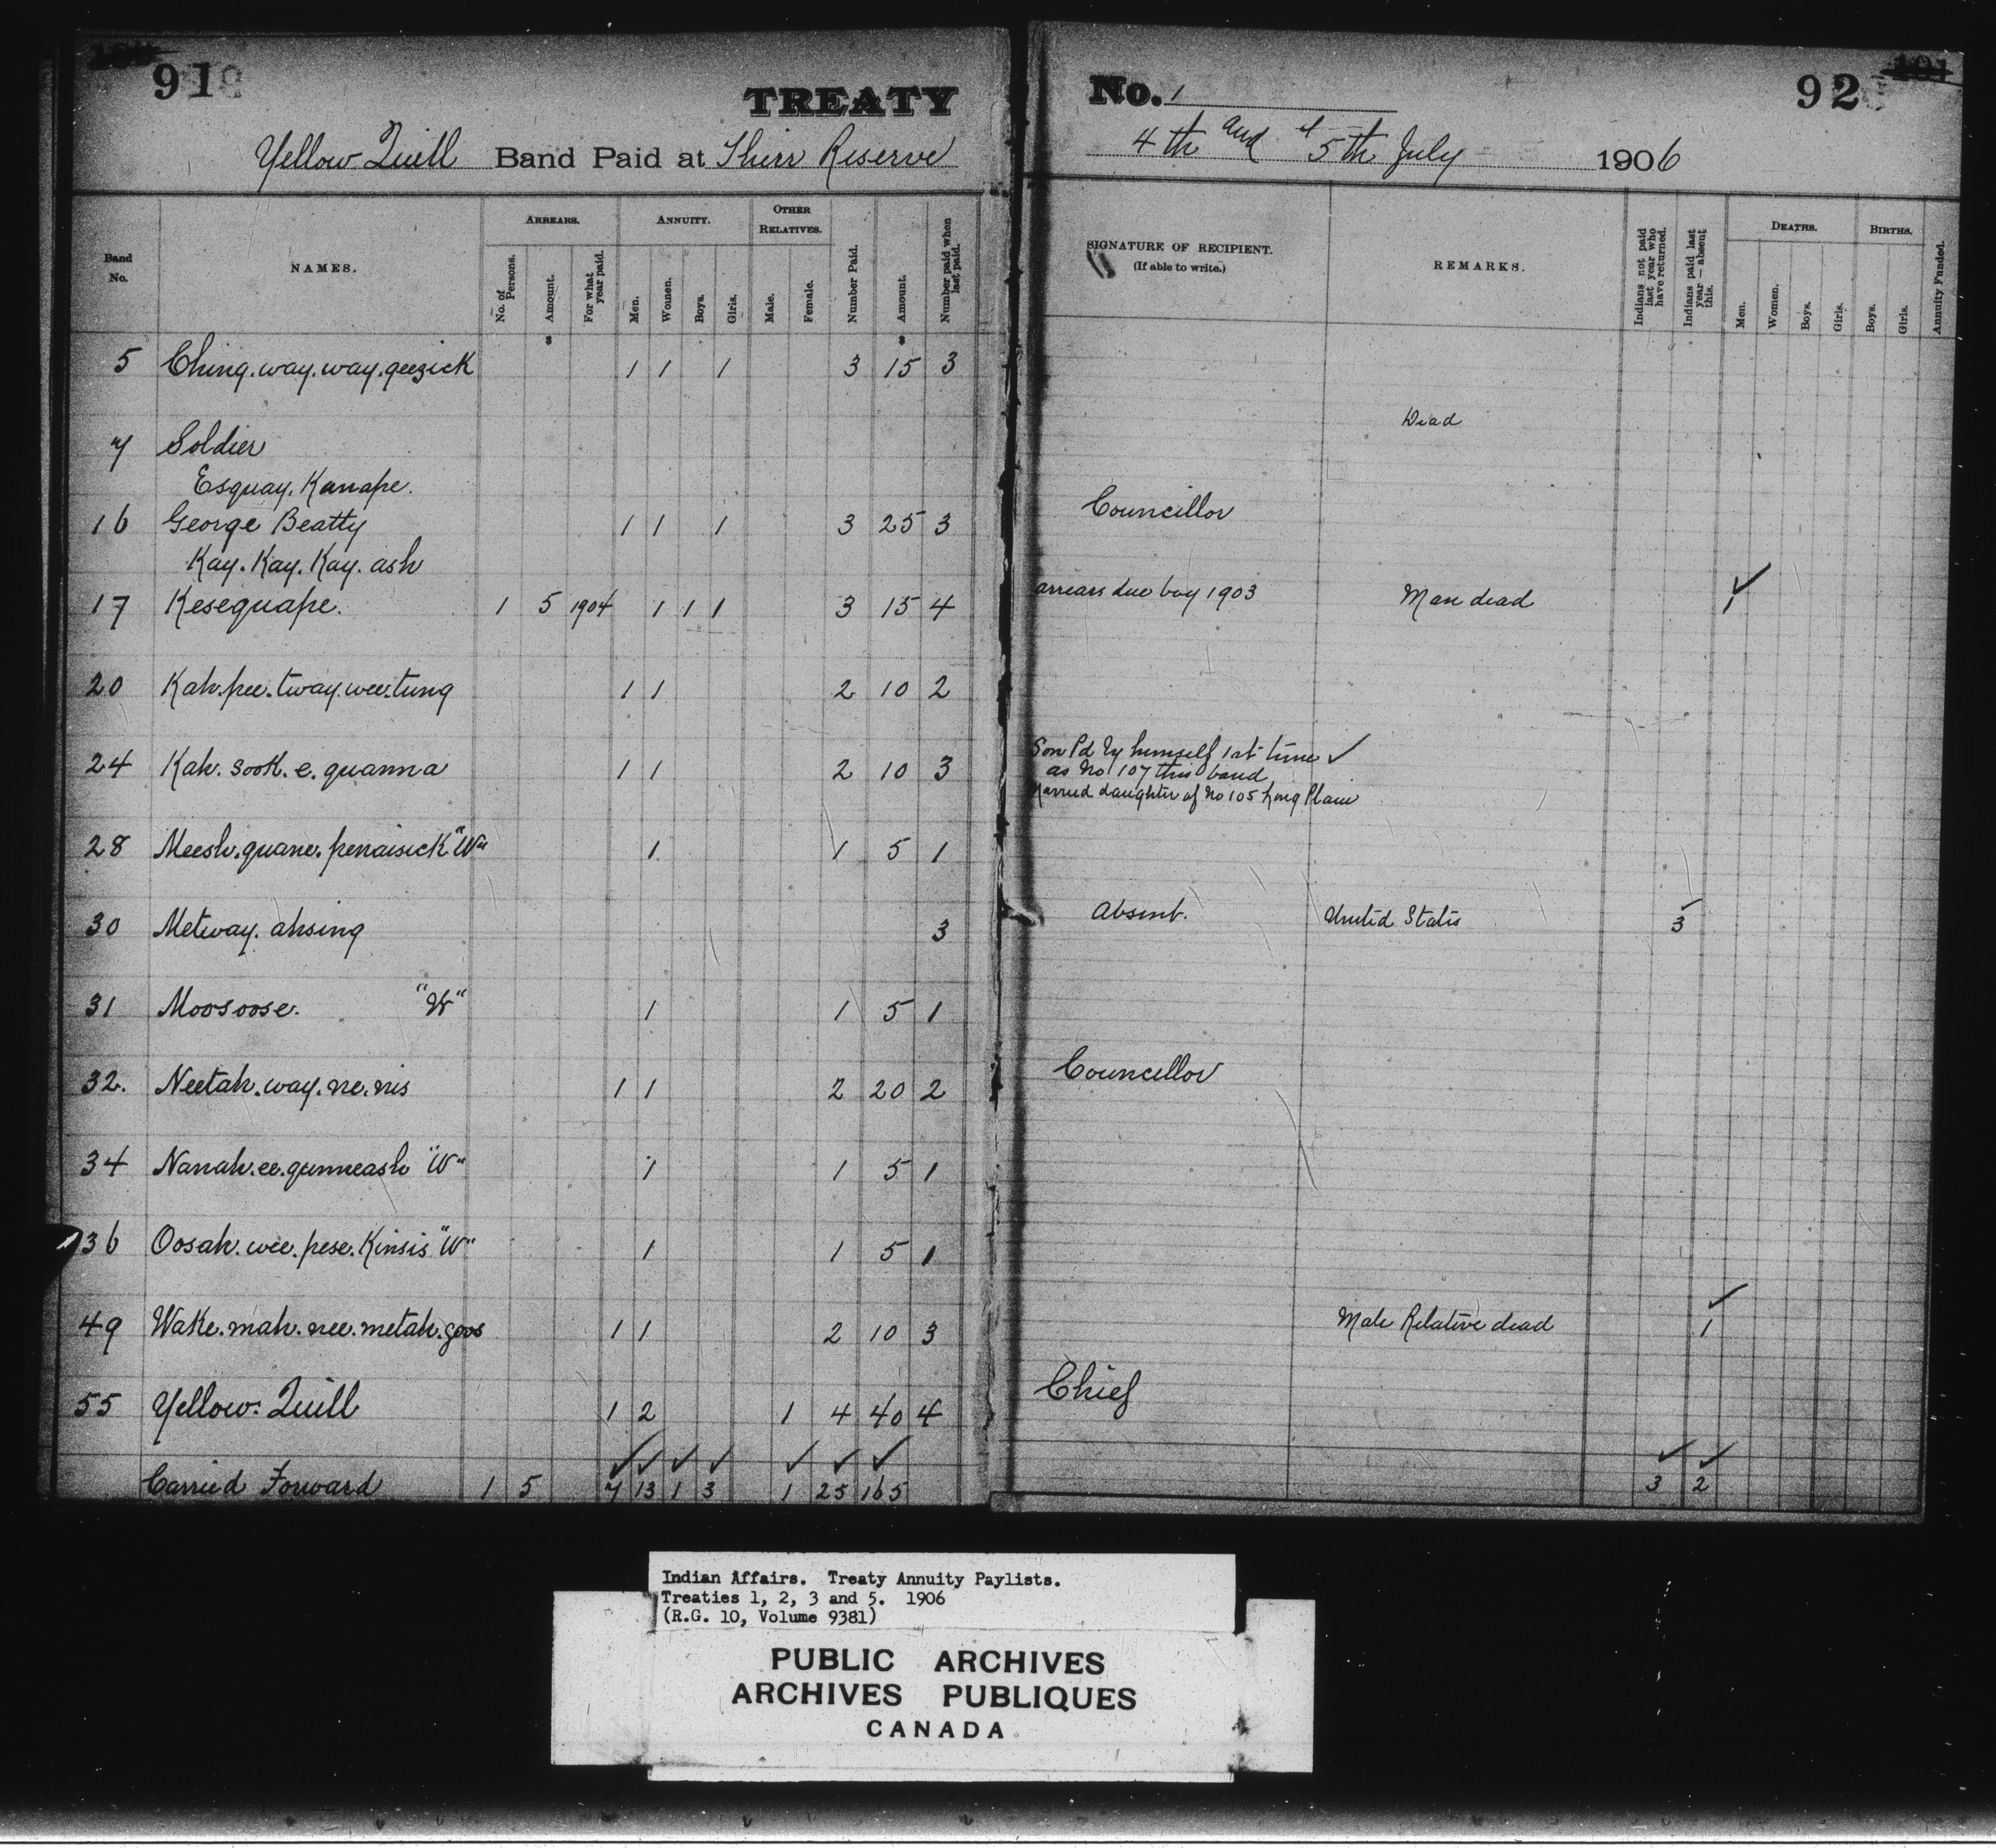 91
TREATY No. 1
92
Yellow Quill Band Paid at Their Reserve 4th and 5th July 1906
Band No.
NAMES.
ARREARS.
No. of Persons.
Amount.
For what year paid.
ANNUITY.
Men.
Women.
Boys.
Girls.
OTHER RELATIVES.
Male.
Female.
Number Paid.
Amount.
Number paid when last paid.
SIGNATURE OF RECIPIENT.
(If able to write.)
REMARKS.
Indians not paid last year who have returned.
Indians paid last year — absent this.
DEATHS.
Men.
Women.
Boys.
Girls.
BIRTHS.
Boys.
Girls.
Annuity Funded.
$ $
5 Ching.way.way.geezick 1 1 1 3 15 3
7 Soldier Dead
Esquay. Kanape.
16 George Beatty 1 1 1 3 25 3 Councillor
Kay. Kay. Kay. ash
17 Kesequape. 1 5 1904 1 1 1 3 15 4 arrears due boy 1903 Man dead ✓ 1
20 Kah.pee.tway.wee.tung 1 1 2 10 2
24 Kah. sook. e. quanna 1 1 2 10 3 Son Pd by himself 1st time ✓
as No 107 this band
Married daughter of No 105 Long Plain
28 Meesh.quane.penaisick "W" 1 1 5 1
30 Metway. ahsing 3 Absent. United States ✓ 3
31 Moosoose. "W" 1 1 5 1
32. Neetah.way.ne.nis 1 1 2 20 2 Councillor
34 Nanah.ee.gunneash "W" 1 1 5 1
36 Oosah.wee.pese.Kinsis "W" 1 1 5 1
49 Wake.mah.nee.metah.goos 1 1 2 10 3 Male Relative dead ✓ 1
55 Yellow Quill 1 2 1 4 40 4 Chief
✓ ✓ ✓ ✓ ✓ ✓ ✓ ✓ ✓
Carried Forward 1 5 7 13 1 3 1 25 165 3 2
Indian Affairs. Treaty Annuity Paylists.
Treaties 1, 2, 3 and 5. 1906
(R.G. 10, Volume 9381)
PUBLIC ARCHIVES
ARCHIVES PUBLIQUES
CANADA